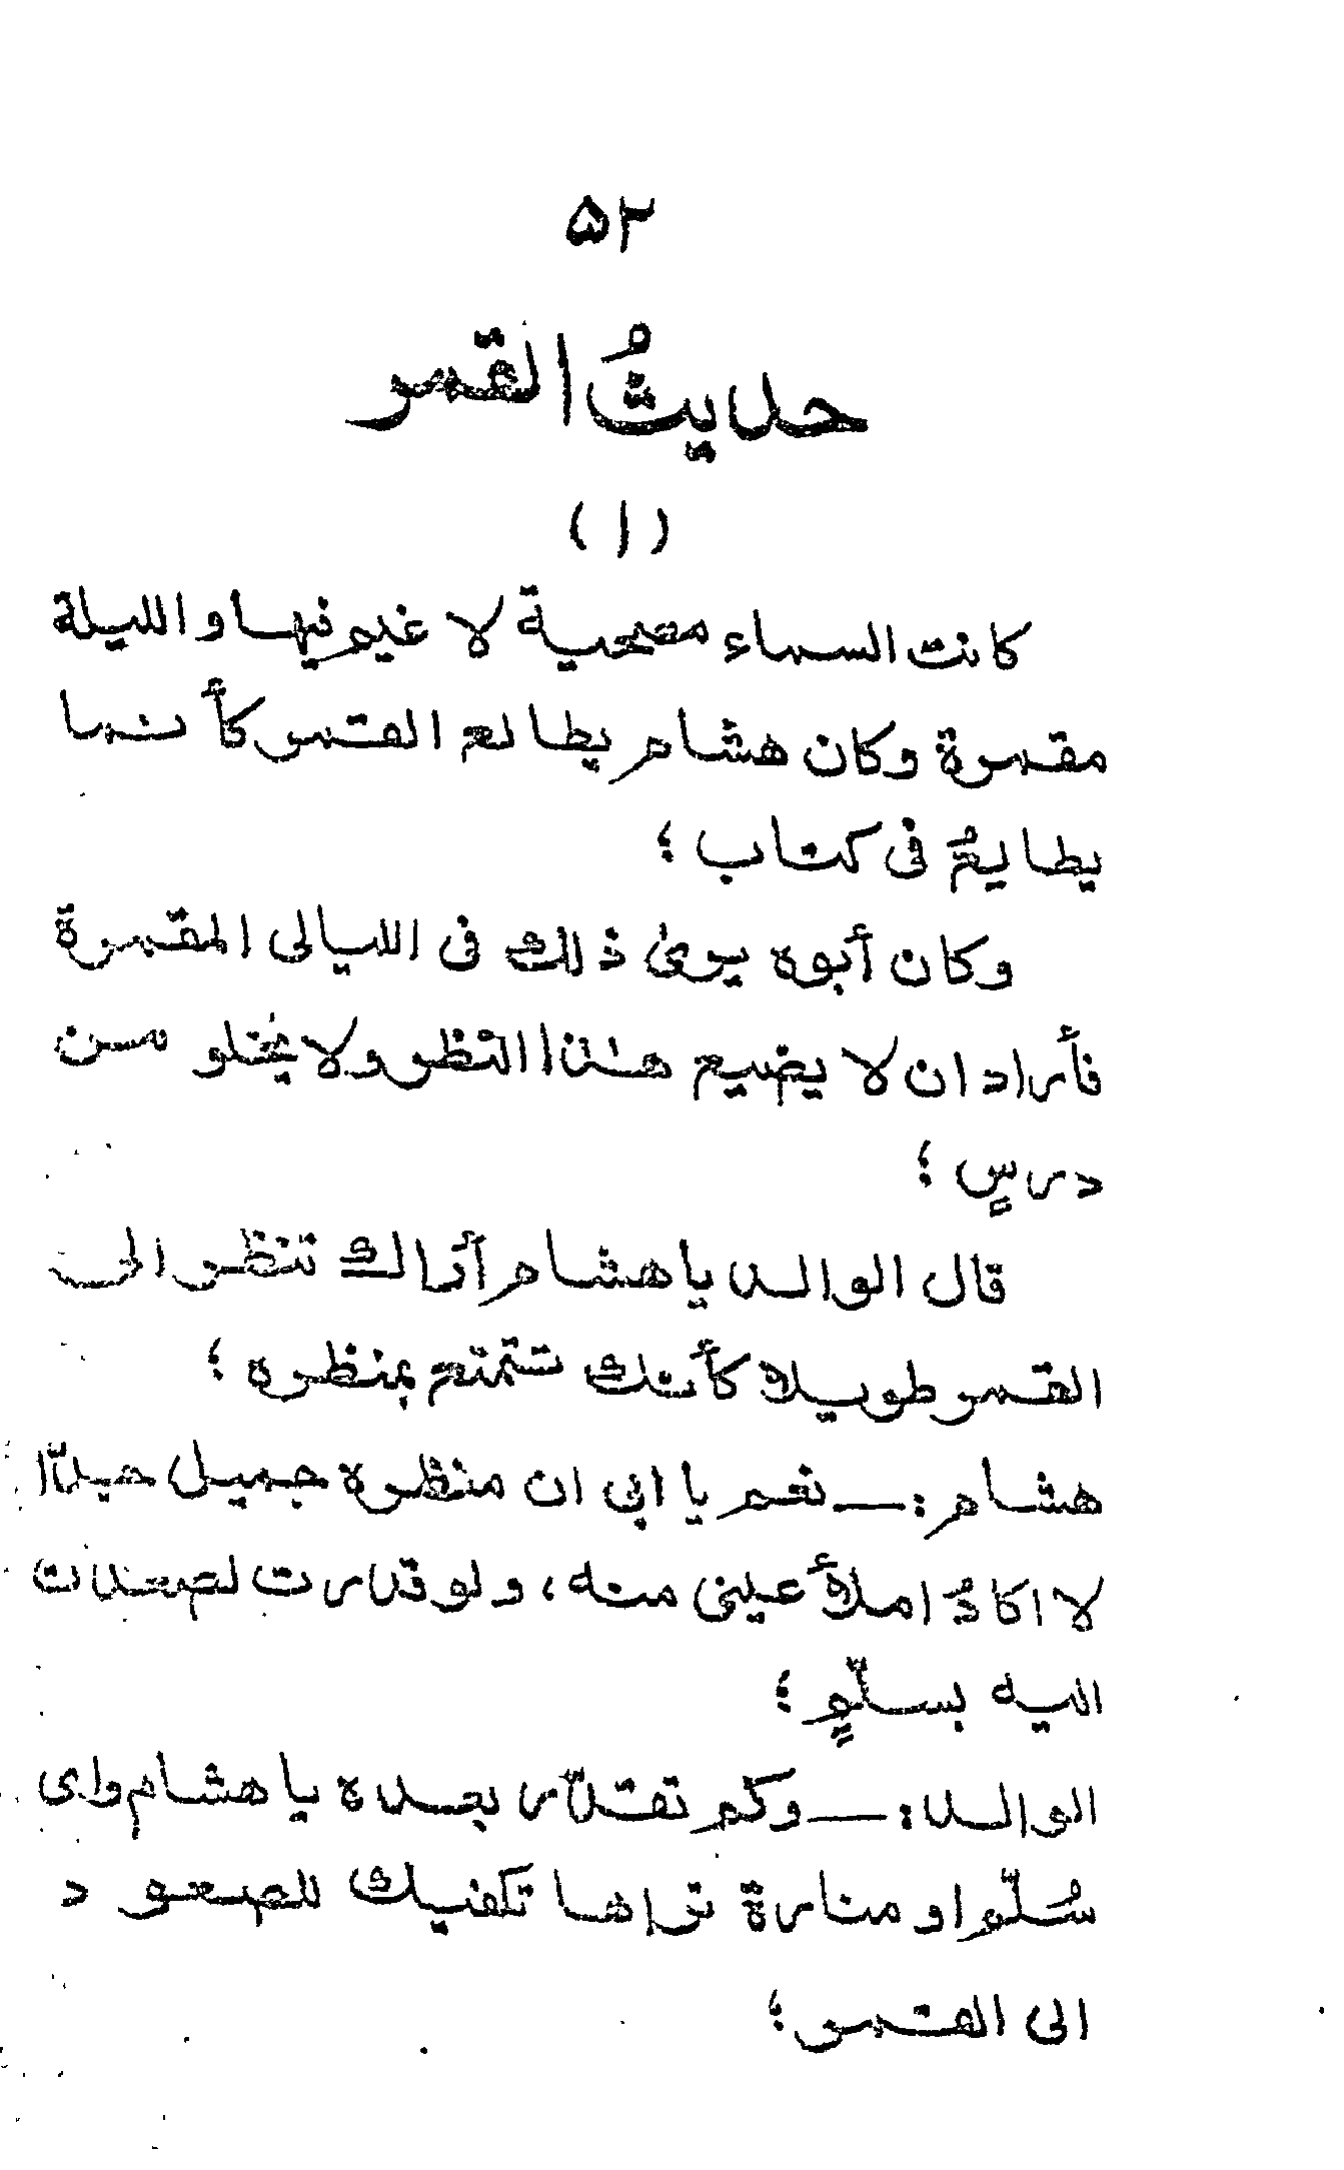 ۵۲
حديثُ القمر
(۱)
كانت السماء مصحية لا غيم فيها والليلة
مقمرة وكان هشام يطالع القمر كأنما
يطايعُ فى كتاب ؛
وكان أبوه يرىٰ ذلك فى الليالى المقمرة
فأراد ان لا يضيع هٰذا النظر ولا يخلو من
درسٍ ؛
قال الوالد يا هشام أراك تنظر الى
القمر طويلا كأنك تتمتع بمنظره ؛
هشام :— نعم يا ابى ان منظره جميل جدّا
لا اكادُ املأ عينى منه، ولو قدرت لصعدت
اليه بسلّمٍ ؛
الوالد :— وكم تقدّر بعده يا هشام واى
سُلّم او منارة تراها تكفيك للصعود
الى القمر؛